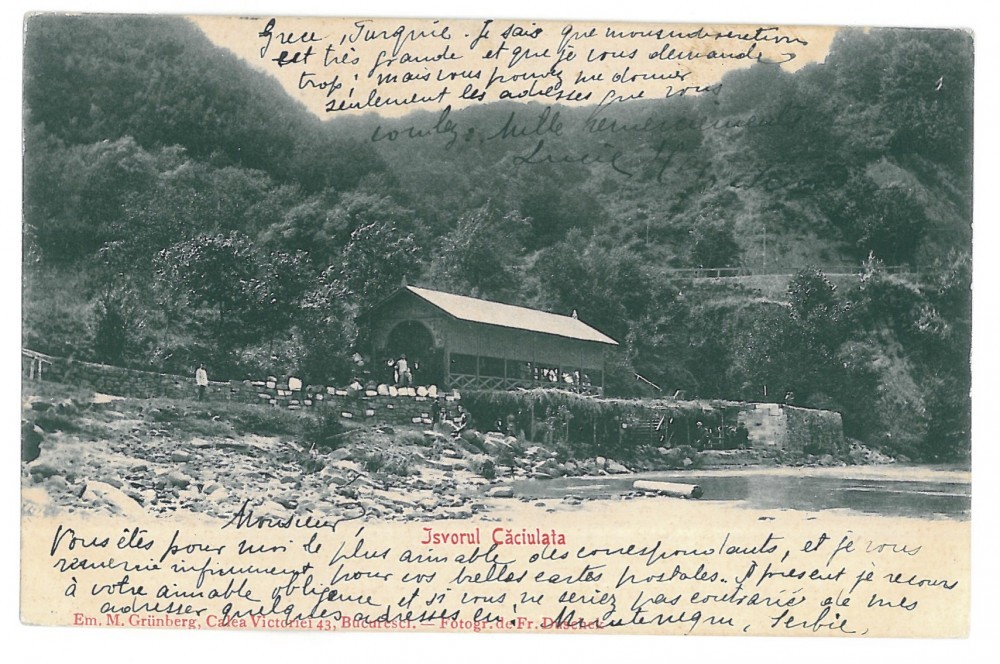 Grèce, Turquie. Je sais que mon indiscrétion
est très grande et que je vous demande
trop! mais vous pouvez me donner
seulement les adresses que vous
voulez. Mille remerciements
Lucie
Isvorul Căciulata
Monsieur,
Vous êtes pour moi le plus aimable des correspondants, et je vous
remercie infiniment pour vos belles cartes postales. A présent je recours
à votre aimable obligence et si vous ne seriez pas contrarié de mes
adresser quelques adresses en: Montenegru, Serbie,
Em. M. Grünberg, Calea Victoriei 43, Bucuresci. — Fotogr. de Fr. Duschek